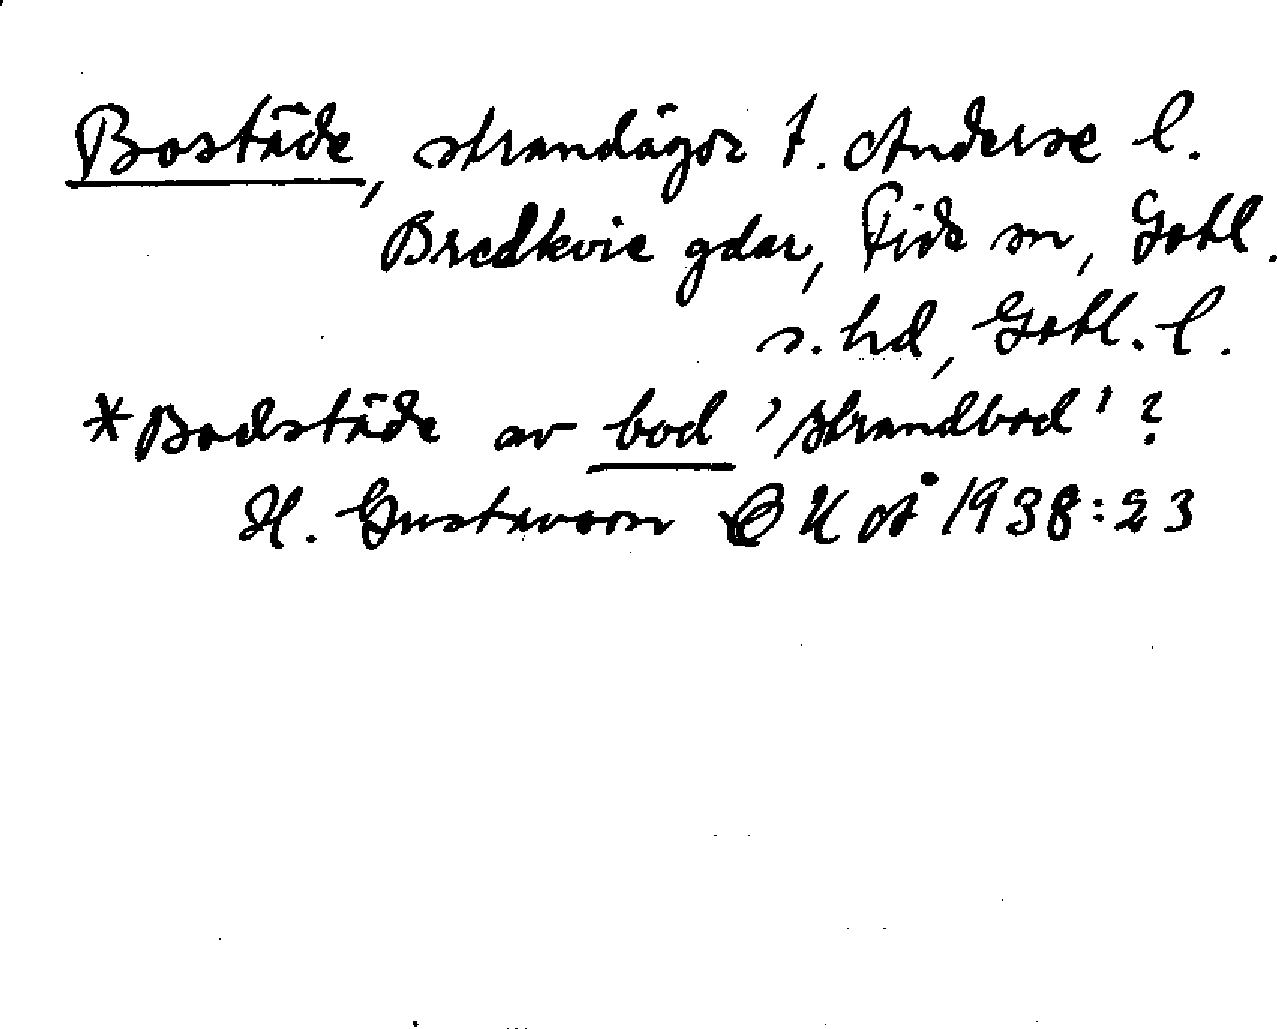 Bostäde, strandägor t. Anderse l.
Bredkvie gdar, Fide sn, Gotl.
s. hd, Gotl. l.
*Bodstäde av bod 'strandbod'?
H. Gustavson GHÅ 1938:23